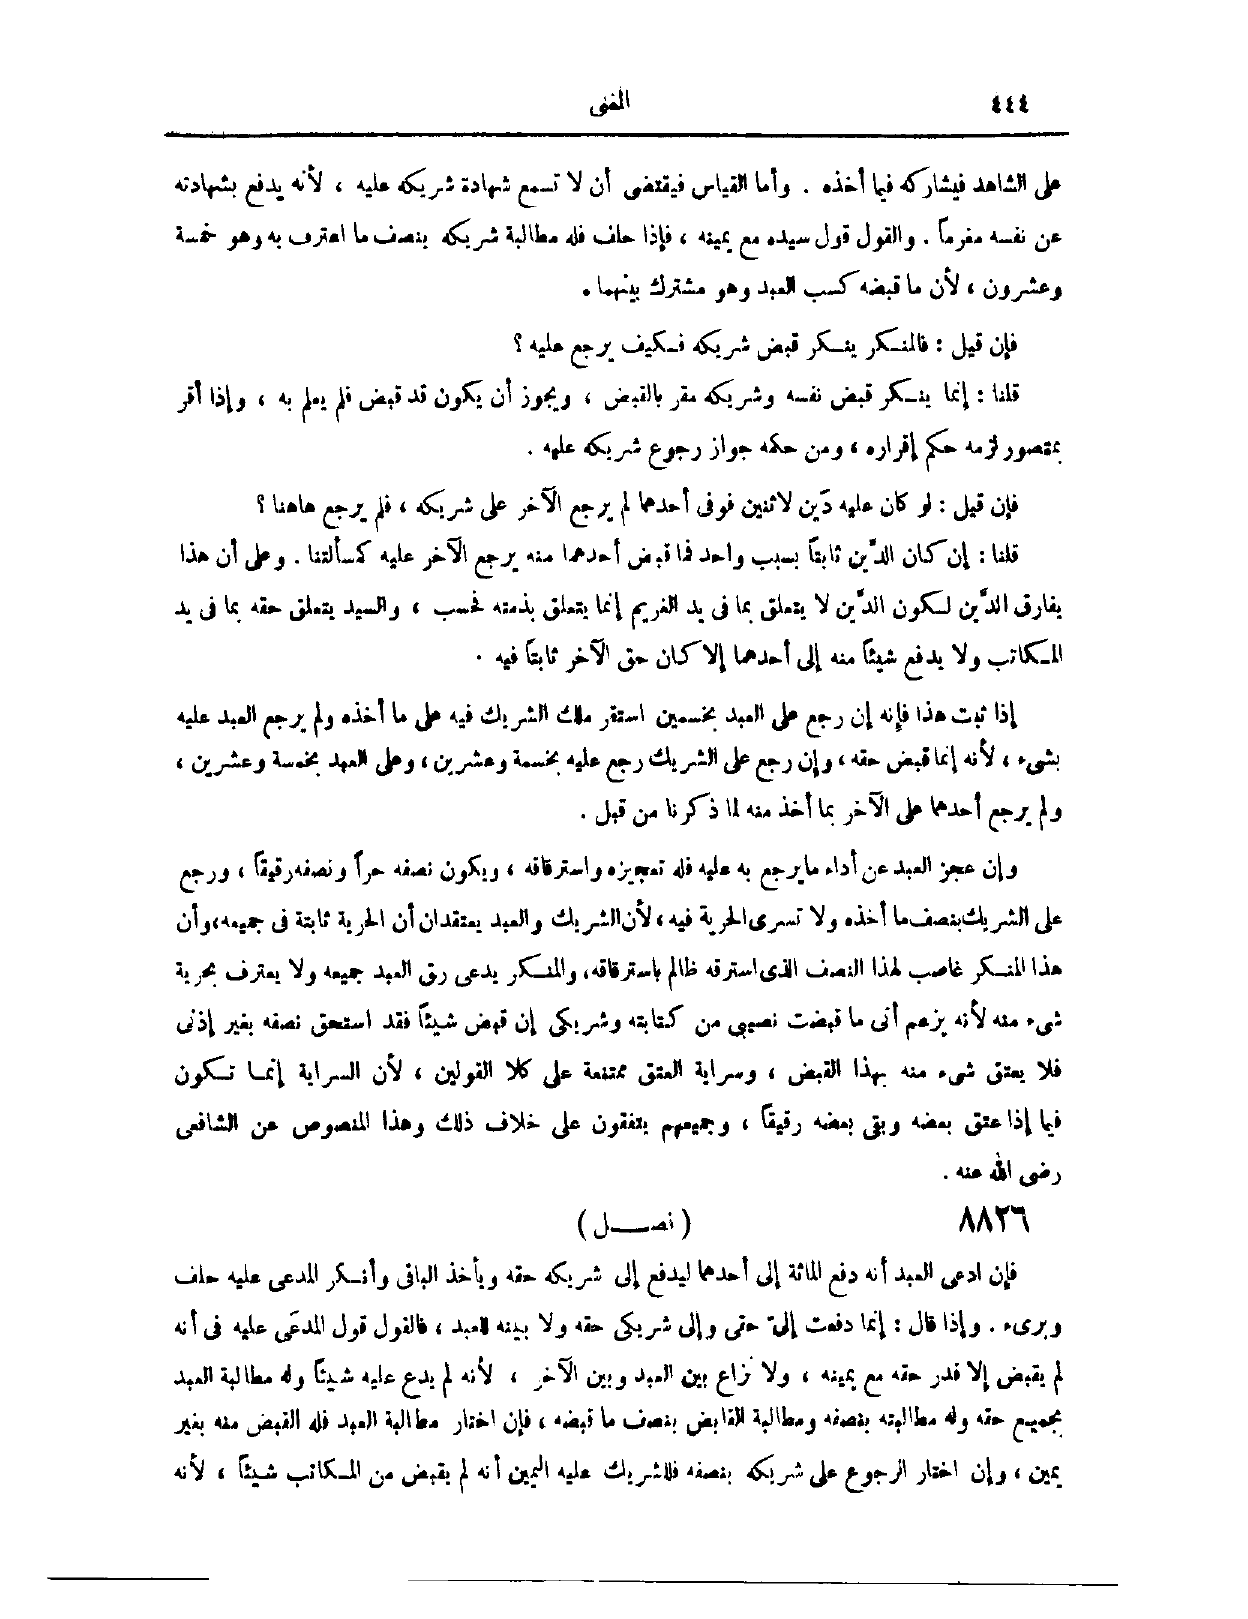 ٤٤٤
المغنى
على الشاهد فيشاركه فيما أخذه . وأما القياس فيقتضى أن لا تسمع شهادة شريكه عليه ، لأنه يدفع بشهادته
عن نفسه مغرماً . والقول قول سيده مع يمينه ، فإذا حلف فله مطالبة شريكه بنصف ما اعترف به وهو خمسة
وعشرون ، لأن ما قبضه كسب العبد وهو مشترك بينهما .
فإن قيل : فالمنكر ينكر قبض شريكه فكيف يرجع عليه ؟
قلنا : إنما ينكر قبض نفسه وشريكه مقر بالقبض ، ويجوز أن يكون قد قبض فلم يعلم به ، وإذا أقر
بمتصور لزمه حكم إقراره ، ومن حكمه جواز رجوع شريكه عليه .
فإن قيل : لو كان عليه دَين لاثنين فوفى أحدهما لم يرجع الآخر على شريكه ، فلم يرجع هاهنا ؟
قلنا : إن كان الدَّين ثابتاً بسبب واحد فما قبض أحدهما منه يرجع الآخر عليه كمسألتنا . وعلى أن هذا
يفارق الدَّين لكون الدَّين لا يتعلق بما فى يد الغريم إنما يتعلق بذمته فحسب ، والسيد يتعلق حقه بما فى يد
المكاتب ولا يدفع شيئاً منه إلى أحدهما إلا كان حق الآخر ثابتاً فيه .
إذا ثبت هذا فإنه إن رجع على العبد بخمسين استقر ملك الشريك فيه على ما أخذه ولم يرجع العبد عليه
بشىء ، لأنه إنما قبض حقه ، وإن رجع على الشريك رجع عليه بخمسة وعشرين ، وعلى العبد بخمسة وعشرين ،
ولم يرجع أحدهما على الآخر بما أخذ منه لما ذكرنا من قبل .
وإن عجز العبد عن أداء ما يرجع به عليه فله تعجيزه واسترقاقه ، ويكون نصفه حراً ونصفه رقيقاً ، ورجع
على الشريك بنصف ما أخذه ولا تسرى الحرية فيه ، لأن الشريك والعبد يعتقدان أن الحرية ثابتة فى جميعه، وأن
هذا المنكر غاصب لهذا النصف الذى استرقه ظالم باسترقاقه، والمنكر يدعى رق العبد جميعه ولا يعترف بحرية
شىء منه لأنه يزعم أنى ما قبضت نصيبى من كتابته وشريكى إن قبض شيئاً فقد استحق نصفه بغير إذنى
فلا يعتق شىء منه بهذا القبض ، وسراية العتق ممتنعة على كلا القولين ، لأن السراية إنما تكون
فيما إذا عتق بعضه وبقى بعضه رقيقاً ، وجميعهم يتفقون على خلاف ذلك وهذا المنصوص عن الشافعى
رضى الله عنه .
٨٨٢٦
( فصــل )
فإن ادعى العبد أنه دفع المائة إلى أحدهما ليدفع إلى شريكه حقه ويأخذ الباقى وأنكر المدعى عليه حلف
وبرىء . وإذا قال : إنما دفعت إلىّ حقى وإلى شريكى حقه ولا بينه للعبد ، فالقول قول المدعَى عليه فى أنه
لم يقبض إلا قدر حقه مع يمينه ، ولا نزاع بين العبد وبين الآخر ، لأنه لم يدع عليه شيئاً وله مطالبة العبد
بجميع حقه وله مطالبته بنصفه ومطالبة القابض بنصف ما قبضه ، فإن اختار مطالبة العبد فله القبض منه بغير
يمين ، وإن اختار الرجوع على شريكه بنصفه فللشريك عليه اليمين أنه لم يقبض من المكاتب شيئاً ، لأنه